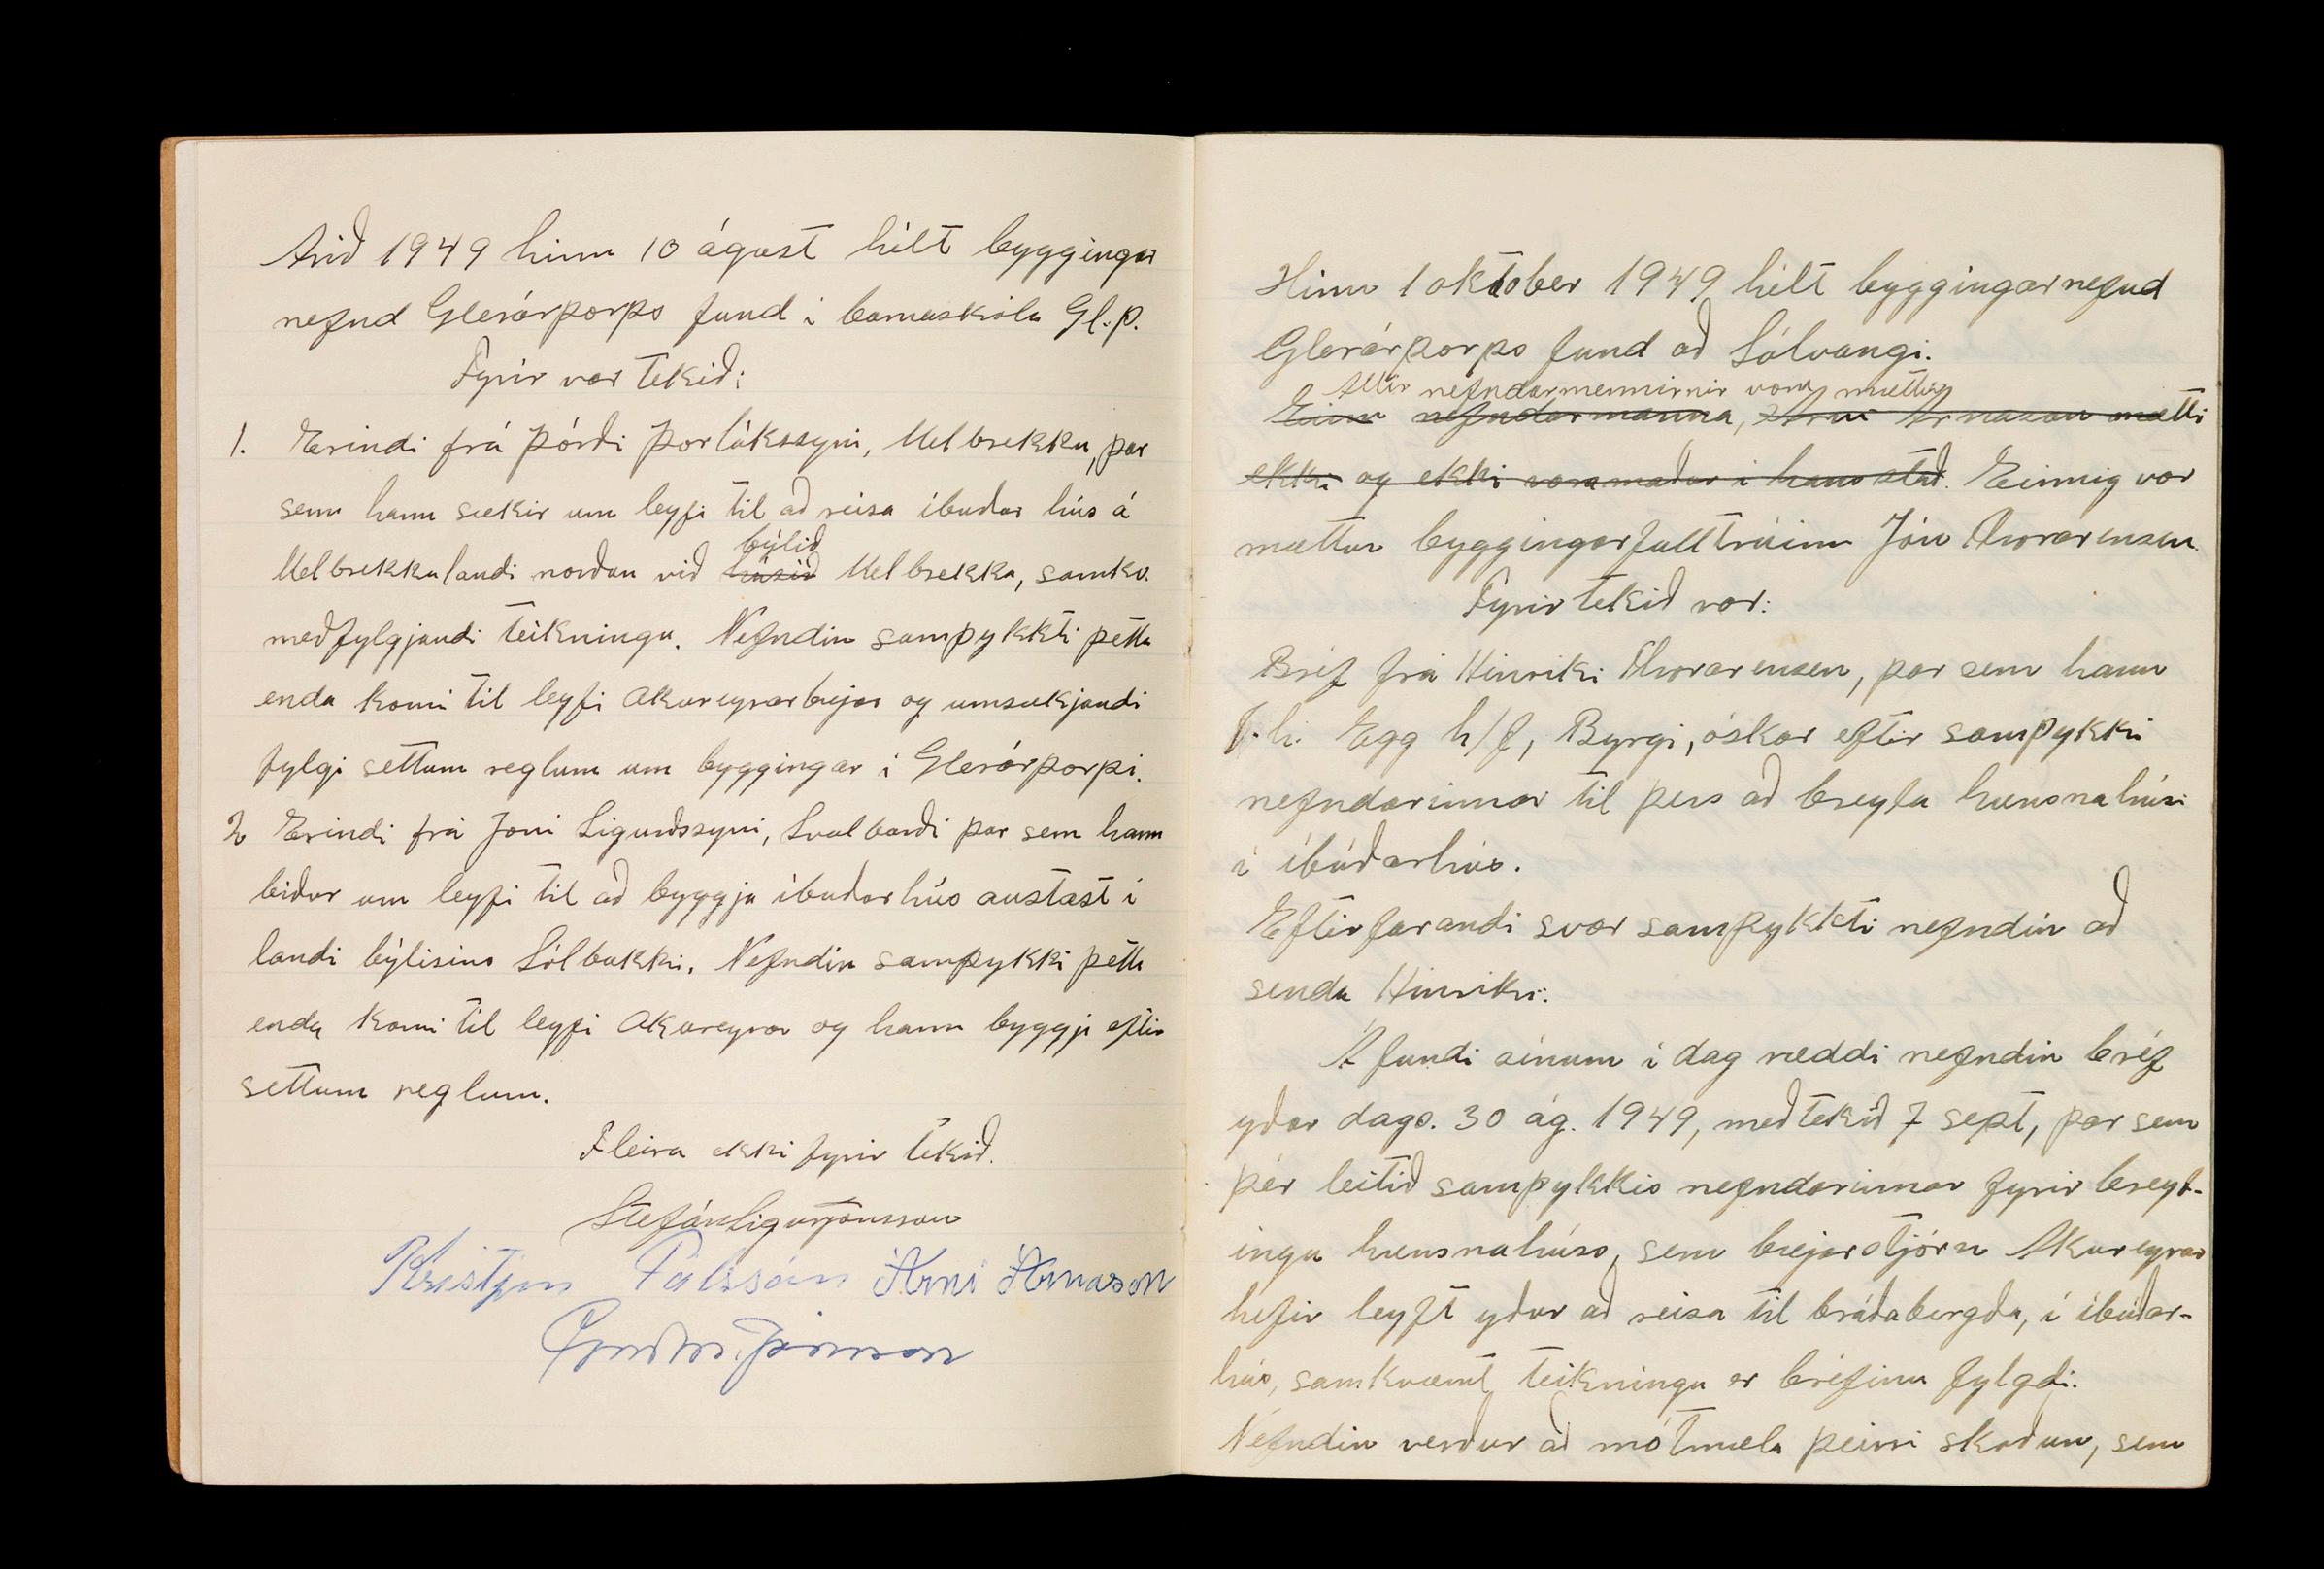 Árið 1949 hinn 10 ágúst hélt byggingar
nefnd Glerárþorps fund í barnaskóla Gl.þ.
Fyrir var tekið:
1. Erindi frá Þórði Þorlákssyni, Melbrekku, þar
sem hann sækir um leyfi til að reisa íbúðar hús á
býlið
Melbrekkulandi norðan við húsið Melbrekka, samkv.
meðfylgjandi teikningu. Nefndin samþykkti þetta
enda komi til leyfi Akureyrarbæjar og umsækjandi
fylgi settum reglum um byggingar í Glerárþorpi.
2 Erindi frá Jóni Sigurðssyni, Svalbarði þar sem hann
biður um leyfi til að byggja íbúðarhús austast í
landi býlisins Sólbakki. Nefndin samþykki þetta
enda komi til leyfi Akureyrar og hann byggji eftir
settum reglum.
Fleira ekki fyrir tekið.
Stefán Sigurjónsson
Kristján Pálsson Árni Árnason
Hinn 1 október 1949 hélt byggingarnefnd
Glerárþorps fund að Sólvangi.
Allir nefndarmennirnir voru mættir
Einn nefndarmanna, Árni Árnason mætti
ekki og ekki varamaður í hans stað. Einnig var
mættur byggingarfulltrúinn Jón Thorarensen.
Fyrir tekið var:
Bréf frá Hinriki Thorarensen, þar sem hann
f.h. Egg h/f, Byrgi, óskar eftir samþykki
nefndarinnar til þess að breyta hænsnahúsi
í íbúðarhús.
Eftirfarandi svar samþykkti nefndin að
senda Hinriki:
Á fundi sínum í dag ræddi nefndin bréf
yðar dags. 30 ág. 1949, meðtekið 7 sept, þar sem
þér leitið samþykkis nefndarinnar fyrir breyt-
ingu hænsnahúss, sem bæjarstjórn Akureyrar
hefir leyft yður að reisa til bráðabirgða, í íbúðar-
hús, samkvæmt teikningu er bréfinu fylgdi.
Nefndin verður að mótmæla þeirri skoðun, sem